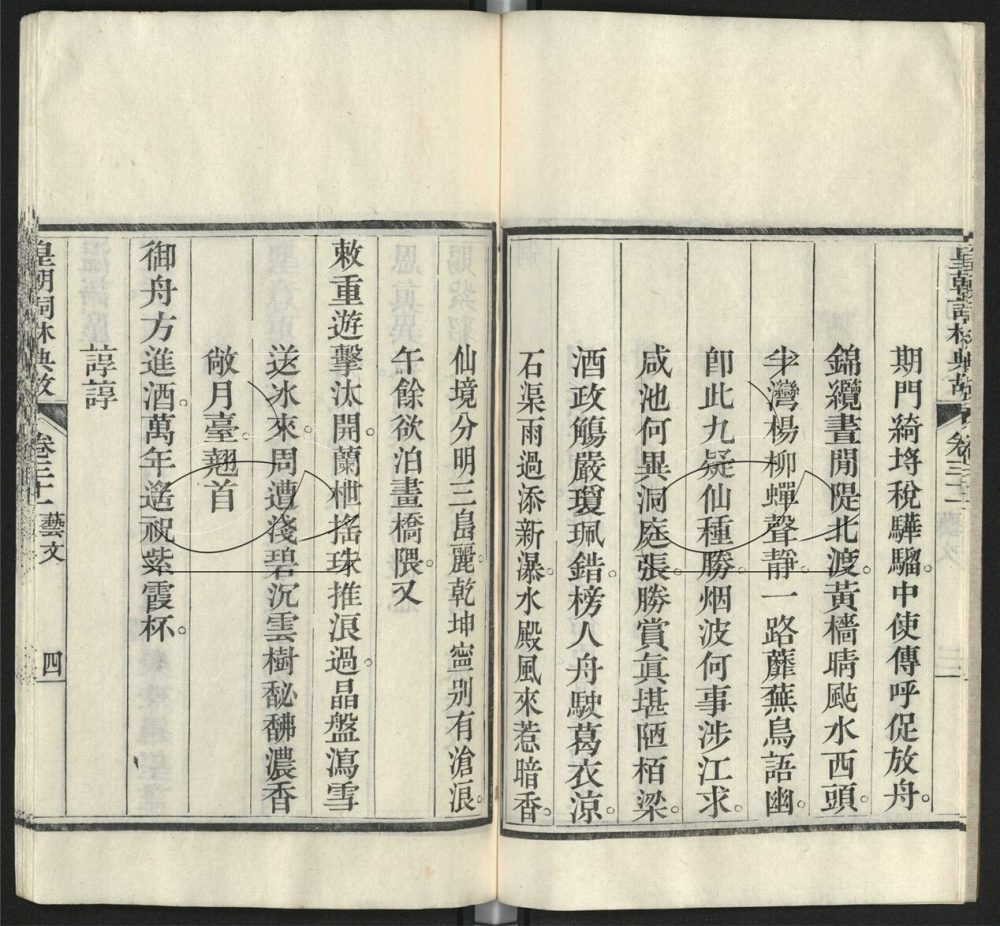 皇朝詞林典故卷三十一 藝文 三
期門綺埒稅驊騮。中使傳呼促放舟。
錦纜晝閒隄北渡。黃檣晴颭水西頭。
半灣楊柳蟬聲靜。一路蘼蕪鳥語幽。
卽此九疑仙種勝。烟波何事涉江求。
咸池何異洞庭張。勝賞眞堪陋栢梁。
酒政觴嚴瓊珮錯。榜人舟駛葛衣涼。
石渠雨過添新瀑。水殿風來惹暗香。
仙境分明三島麗。乾坤寧别有滄浪。
午餘欲泊畫橋隈。又
敕重遊擊汰開。蘭枻搖珠推浪過。晶盤瀉雪
送冰來。周遭淺碧沉雲樹。馝馞濃香
敞月臺。翹首
御舟方進酒。萬年遙祝紫霞杯。
諄諄
皇朝詞林典故 卷三十一 藝文 四